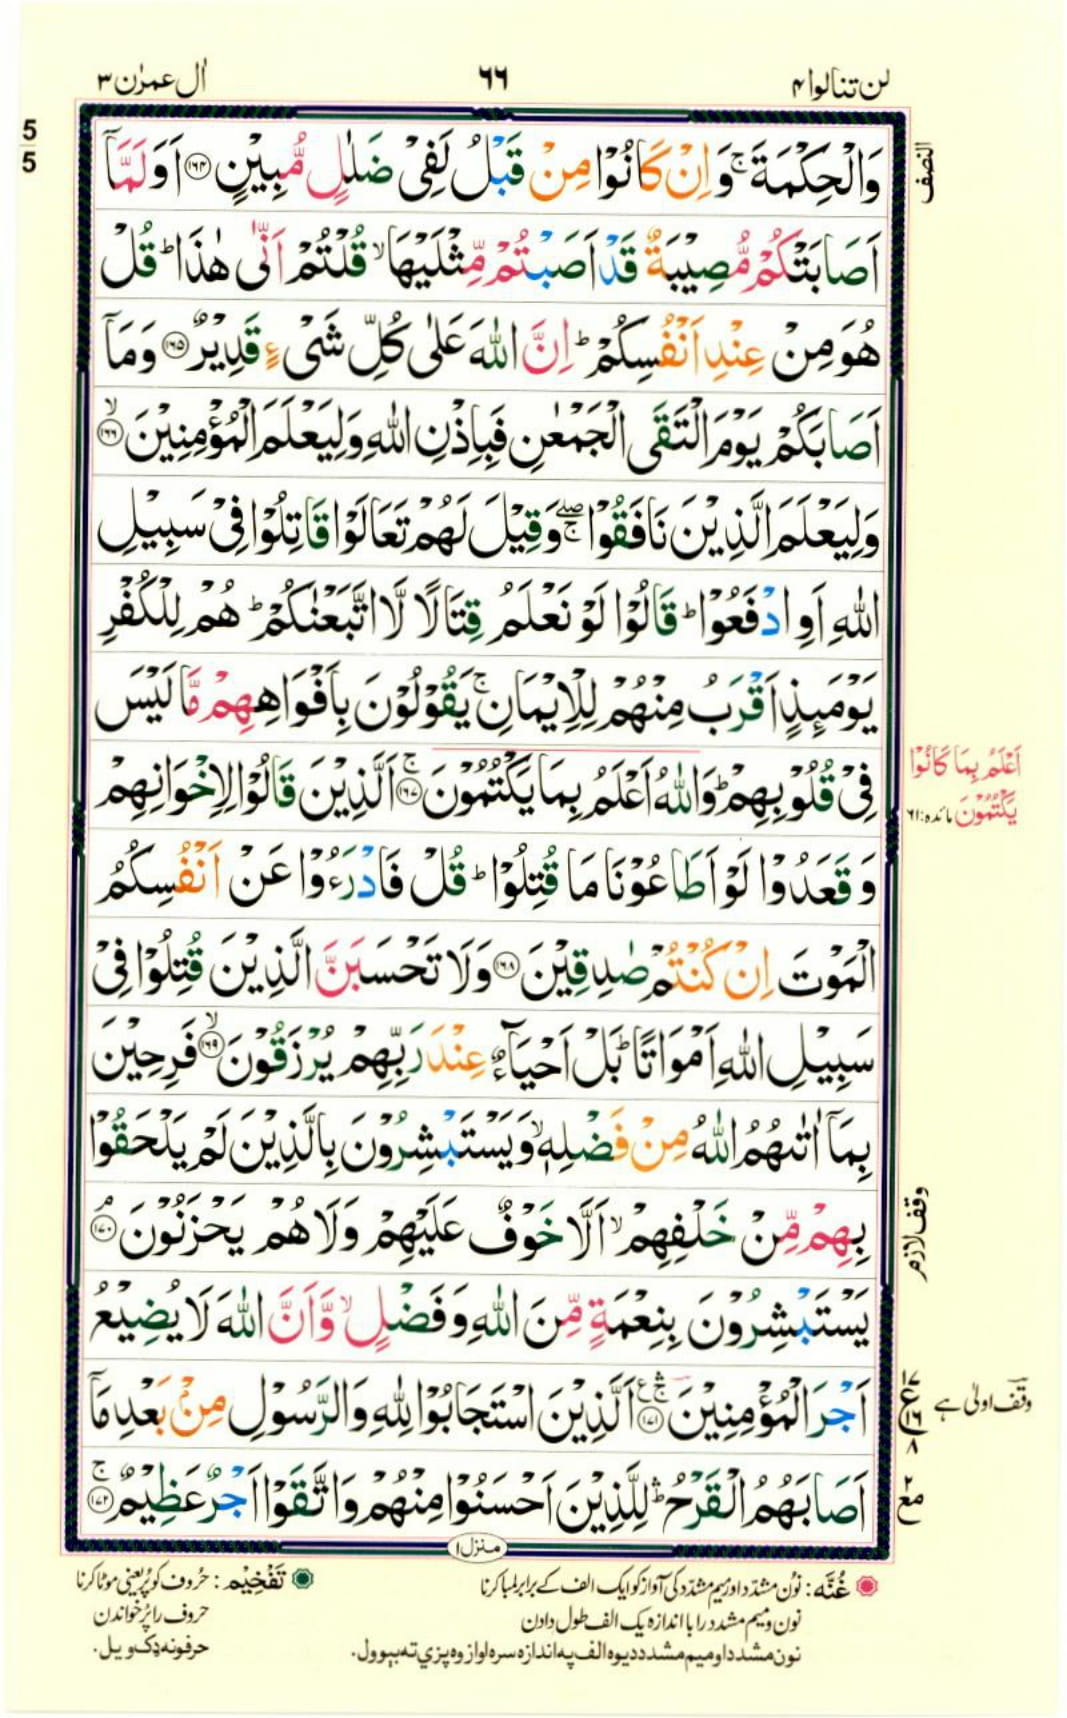 لن تنالوا ۴
۶۶
اٰل عمرٰن ۳
5
5
النصف
وَالْحِكْمَةَ ۚ وَاِنْ كَانُوْا مِنْ قَبْلُ لَفِیْ ضَلٰلٍ مُّبِیْنٍ ﴿۱۶۴﴾ اَوَلَمَّاۤ
اَصَابَتْكُمْ مُّصِیْبَةٌ قَدْ اَصَبْتُمْ مِّثْلَیْهَا ۙ قُلْتُمْ اَنّٰی هٰذَا ؕ قُلْ
هُوَ مِنْ عِنْدِ اَنْفُسِكُمْ ؕ اِنَّ اللّٰهَ عَلٰی كُلِّ شَیْءٍ قَدِیْرٌ ﴿۱۶۵﴾ وَمَاۤ
اَصَابَكُمْ یَوْمَ الْتَقَی الْجَمْعٰنِ فَبِاِذْنِ اللّٰهِ وَلِیَعْلَمَ الْمُؤْمِنِیْنَ ﴿۱۶۶﴾ۙ
وَلِیَعْلَمَ الَّذِیْنَ نَافَقُوْا ۖۚ وَقِیْلَ لَهُمْ تَعَالَوْا قَاتِلُوْا فِیْ سَبِیْلِ
اللّٰهِ اَوِ ادْفَعُوْا ؕ قَالُوْا لَوْ نَعْلَمُ قِتَالًا لَّا اتَّبَعْنٰكُمْ ؕ هُمْ لِلْكُفْرِ
یَوْمَىِٕذٍ اَقْرَبُ مِنْهُمْ لِلْاِیْمَانِ ۚ یَقُوْلُوْنَ بِاَفْوَاهِهِمْ مَّا لَیْسَ
فِیْ قُلُوْبِهِمْ ؕ وَاللّٰهُ اَعْلَمُ بِمَا یَكْتُمُوْنَ ﴿۱۶۷﴾ۚ اَلَّذِیْنَ قَالُوْا لِاِخْوَانِهِمْ
اَعْلَمُ بِمَا كَانُوْا
یَكْتُمُوْنَ مائدہ:۶۱
وَقَعَدُوْا لَوْ اَطَاعُوْنَا مَا قُتِلُوْا ؕ قُلْ فَادْرَءُوْا عَنْ اَنْفُسِكُمُ
الْمَوْتَ اِنْ كُنْتُمْ صٰدِقِیْنَ ﴿۱۶۸﴾ وَلَا تَحْسَبَنَّ الَّذِیْنَ قُتِلُوْا فِیْ
سَبِیْلِ اللّٰهِ اَمْوَاتًا ؕ بَلْ اَحْیَآءٌ عِنْدَ رَبِّهِمْ یُرْزَقُوْنَ ﴿۱۶۹﴾ۙ فَرِحِیْنَ
بِمَاۤ اٰتٰىهُمُ اللّٰهُ مِنْ فَضْلِهٖ ۙ وَیَسْتَبْشِرُوْنَ بِالَّذِیْنَ لَمْ یَلْحَقُوْا
بِهِمْ مِّنْ خَلْفِهِمْ ۙ اَلَّا خَوْفٌ عَلَیْهِمْ وَلَا هُمْ یَحْزَنُوْنَ ﴿۱۷۰﴾ۘ
وقف لازم
یَسْتَبْشِرُوْنَ بِنِعْمَةٍ مِّنَ اللّٰهِ وَفَضْلٍ ۙ وَّاَنَّ اللّٰهَ لَا یُضِیْعُ
اَجْرَ الْمُؤْمِنِیْنَ ﴿۱۷۱﴾ۚۛ اَلَّذِیْنَ اسْتَجَابُوْا لِلّٰهِ وَالرَّسُوْلِ مِنْۢ بَعْدِ مَاۤ
۷
ع
۱۶
۸
وقف اولیٰ ہے
اَصَابَهُمُ الْقَرْحُ ؕۛ لِلَّذِیْنَ اَحْسَنُوْا مِنْهُمْ وَاتَّقَوْا اَجْرٌ عَظِیْمٌ ﴿۱۷۲﴾ۚ
۲
مع
منزل ۱
غُنَّه: نوُن مشدّد اور میم مشدّد کی آواز کو ایک الف کے برابر لمبا کرنا
نون و میم مشدد را با اندازه یک الف طول دادن
نون مشدد او میم مشدد دیوه الف په اندازه سره اواز وه پزي ته بېوول.
تَفْخِیْم: حُروف کو پُر یعنی موٹا کرنا
حروف را پُر خواندن
حرفونه ډک ویل.